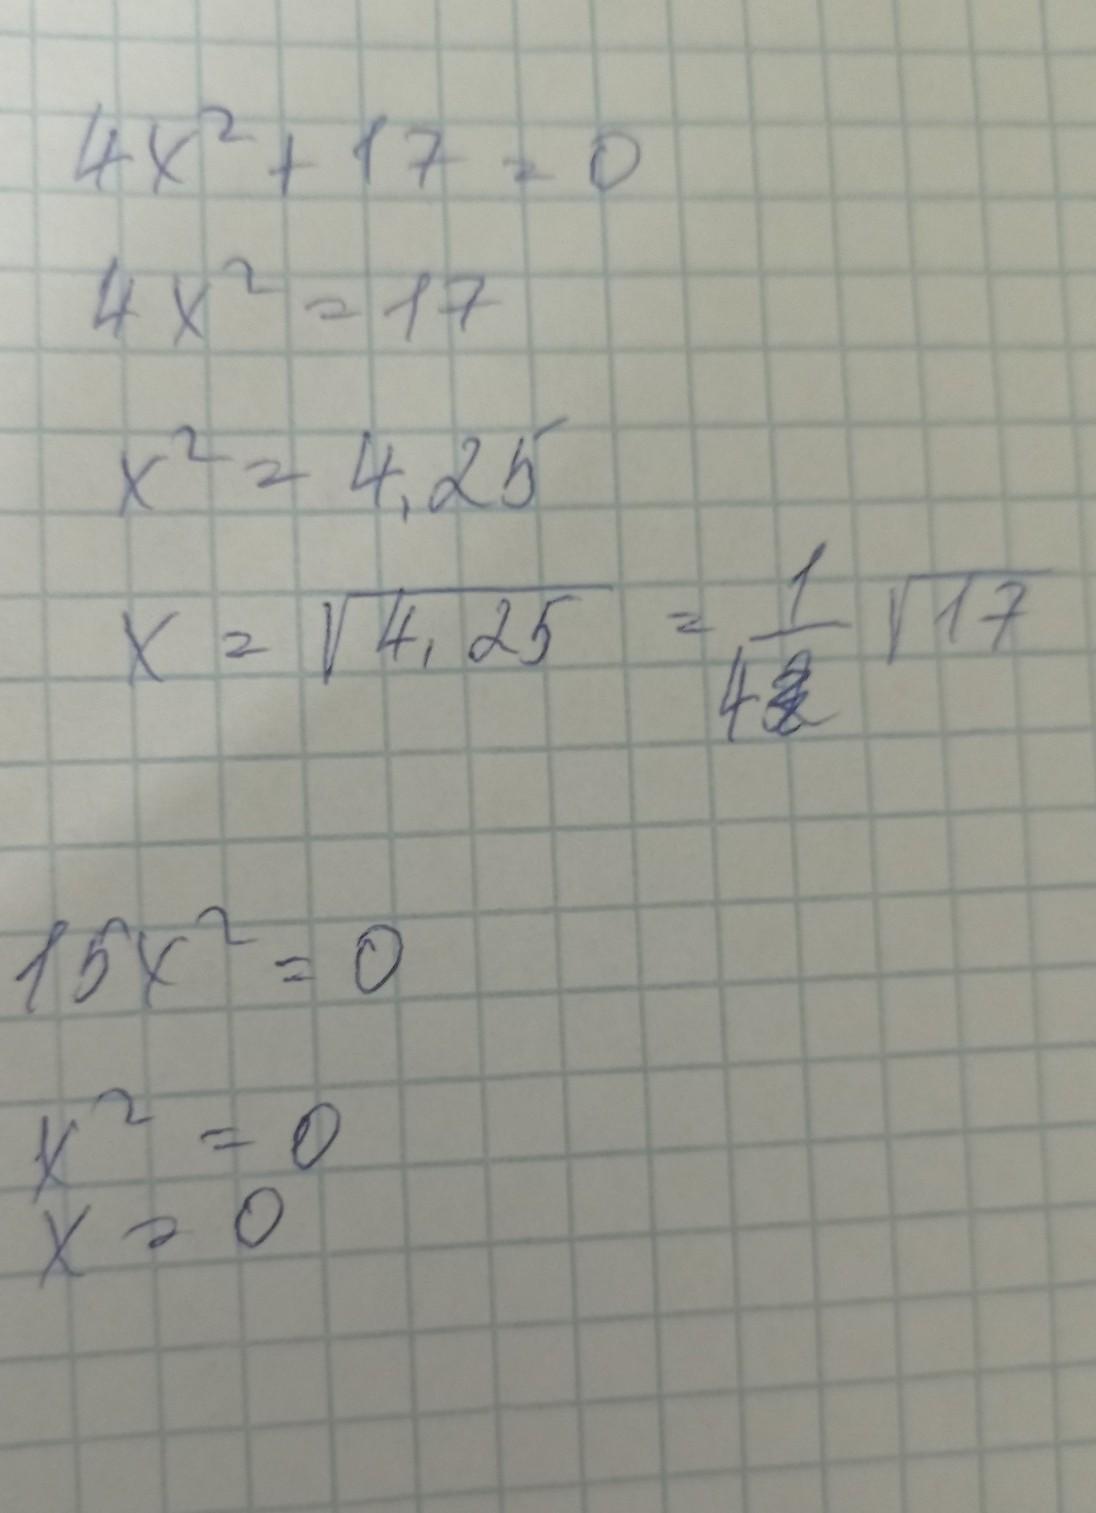 4x² + 17 = 0
4x² = 17
x² = 4,25
x = √4,25 = 1/4 √17
15x² = 0
x² = 0
x = 0